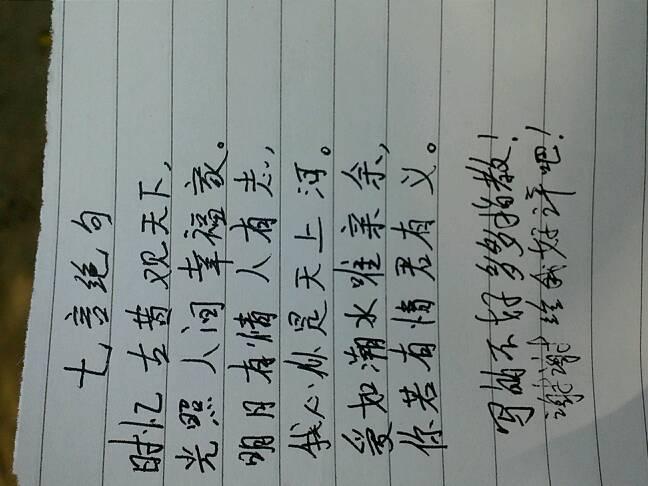 七言绝句
时忆古昔观天下,
光照人间幸福家。
明月有情人有志,
我心似是天上河。
爱如潮水唯亲余,
你若有情君有义。
写的不好多多指教!
谢谢给我好评吧!